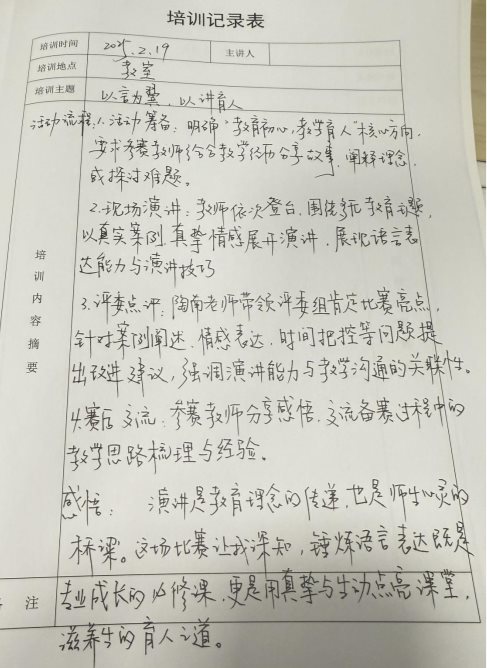 培训记录表
培训时间 2025.2.19 主讲人
培训地点 教室
培训主题 以言为翼，以讲育人
培训内容摘要
活动流程：1.活动筹备：明确“教育初心，教学育人”核心方向，
要求参赛教师结合教学经历分享故事、阐释理念
或探讨难题。
2.现场演讲：教师依次登台，围绕多元教育主题，
以真实案例、真挚情感展开演讲，展现语言表
达能力与演讲技巧
3.评委点评：陶南老师带领评委组肯定比赛亮点，
针对案例阐述、情感表达、时间把控等问题提
出改进建议，强调演讲能力与教学沟通的关联性。
4.赛后交流：参赛教师分享感悟，交流备赛过程中的
教学思路梳理与经验。
感悟： 演讲是教育理念的传递，也是师生心灵的
桥梁。这场比赛让我深知，锤炼语言表达既是
注 专业成长的必修课，更是用真挚与生动点亮课堂，
滋养生的育人之道。